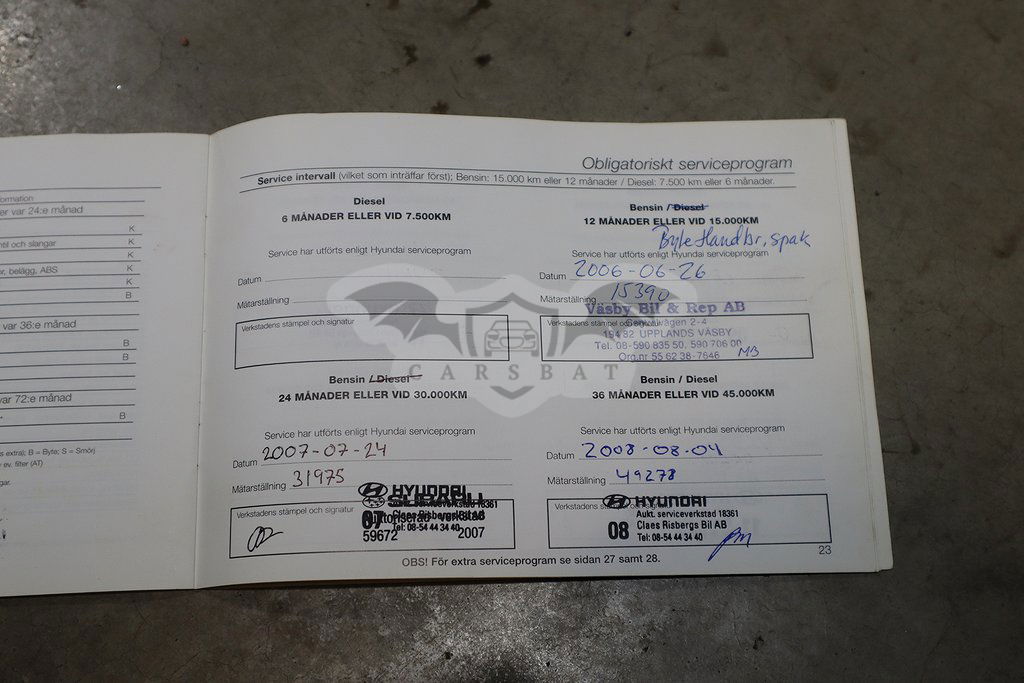 ormation
er var 24:e månad
K
ntil och slangar
K
K
or, belägg, ABS
K
K
B
var 36:e månad
B
B
var 72:e månad
B
s extra); B = Byte; S = Smörj
ev. filter (AT)
gar.
Obligatoriskt serviceprogram
Service intervall (vilket som inträffar först); Bensin: 15.000 km eller 12 månader / Diesel: 7.500 km eller 6 månader.
Diesel
6 MÅNADER ELLER VID 7.500KM
Service har utförts enligt Hyundai serviceprogram
Datum
Mätarställning
Verkstadens stämpel och signatur
Bensin / Diesel
12 MÅNADER ELLER VID 15.000KM
Byte Handbr, spak
Service har utförts enligt Hyundai serviceprogram
Datum 2006-06-26
Mätarställning 15390
Väsby Bil & Rep AB
Verkstadens stämpel och
194 32 UPPLANDS VÄSBY
Tel. 08-590 835 50, 590 706 00
Org.nr 55 62 38-7646 MB
CARSBAT
Bensin / Diesel
24 MÅNADER ELLER VID 30.000KM
Service har utförts enligt Hyundai serviceprogram
Datum 2007-07-24
Mätarställning 31975
HYUNDAI
SUBARU
Verkstadens stämpel och signatur
Aukt. serviceverkstad 18361
Auktoriserad verkstad
Claes Risbergs Bil AB
07
Tel: 08-54 44 34 40
59672 2007
Bensin / Diesel
36 MÅNADER ELLER VID 45.000KM
Service har utförts enligt Hyundai serviceprogram
Datum 2008-08-04
Mätarställning 49278
HYUNDAI
Verkstadens stämpel
Aukt. serviceverkstad 18361
08 Claes Risbergs Bil AB
Tel: 08-54 44 34 40
OBS! För extra serviceprogram se sidan 27 samt 28.
23